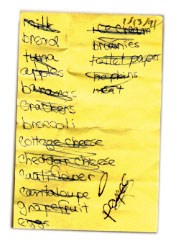 1/13/91
milk
bread
tuna
apples
bananas
crackers
broccoli
cottage cheese
cheddar cheese
cauliflower
cantaloupe
grapefruit
eggs
ice cream
brownies
toilet paper
meat